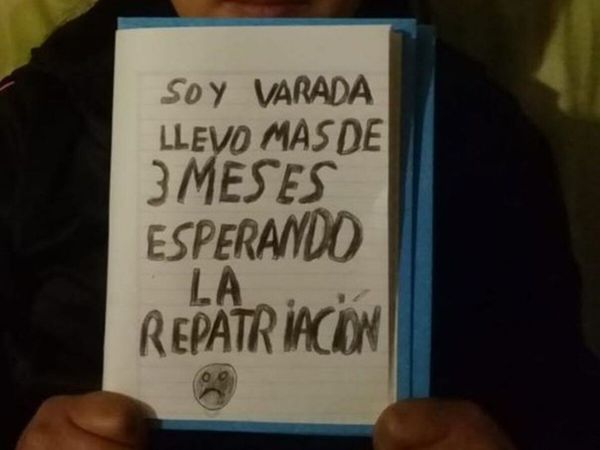 SOY VARADA
LLEVO MAS DE
3 MESES
ESPERANDO
LA
REPATRIACIÓN